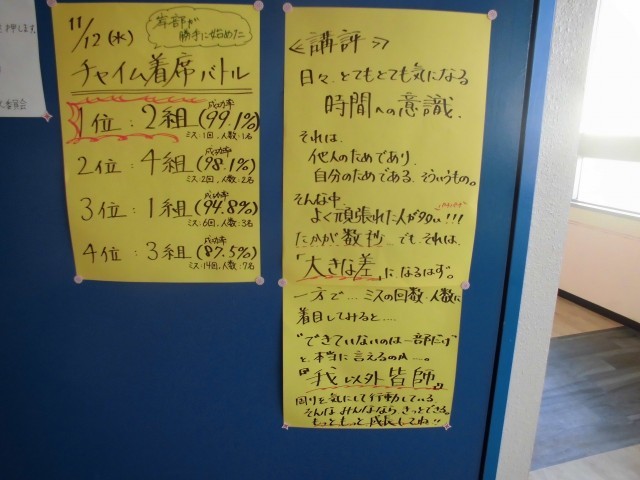 押します
委員会
11/12(水)
宰部が
勝手に始めた
チャイム着席バトル
成功率
1位:2組(99.1%)
ミス:1回,人数:1名
成功率
2位:4組(98.1%)
ミス:2回,人数:2名
成功率
3位:1組(94.8%)
ミス:6回,人数:3名
成功率
4位:3組(87.5%)
ミス:14回,人数:7名
≪講評≫
日々、とてもとても気になる
時間への意識。
それは、
他人のためであり、
自分のためである。そういうもの。
そんな中、
よく頑張れた人が多い!!!
たかが数抄でもそれは、
「大きな差」になるはず。
一方で…ミスの回数、人数に
着目してみると…
"できていないのは一部だけ"
と本当に言えるのか…。
『我以外皆師』
周りを気にして行動している
そんなみんなならきっとできる。
もっともっと成長してね!!